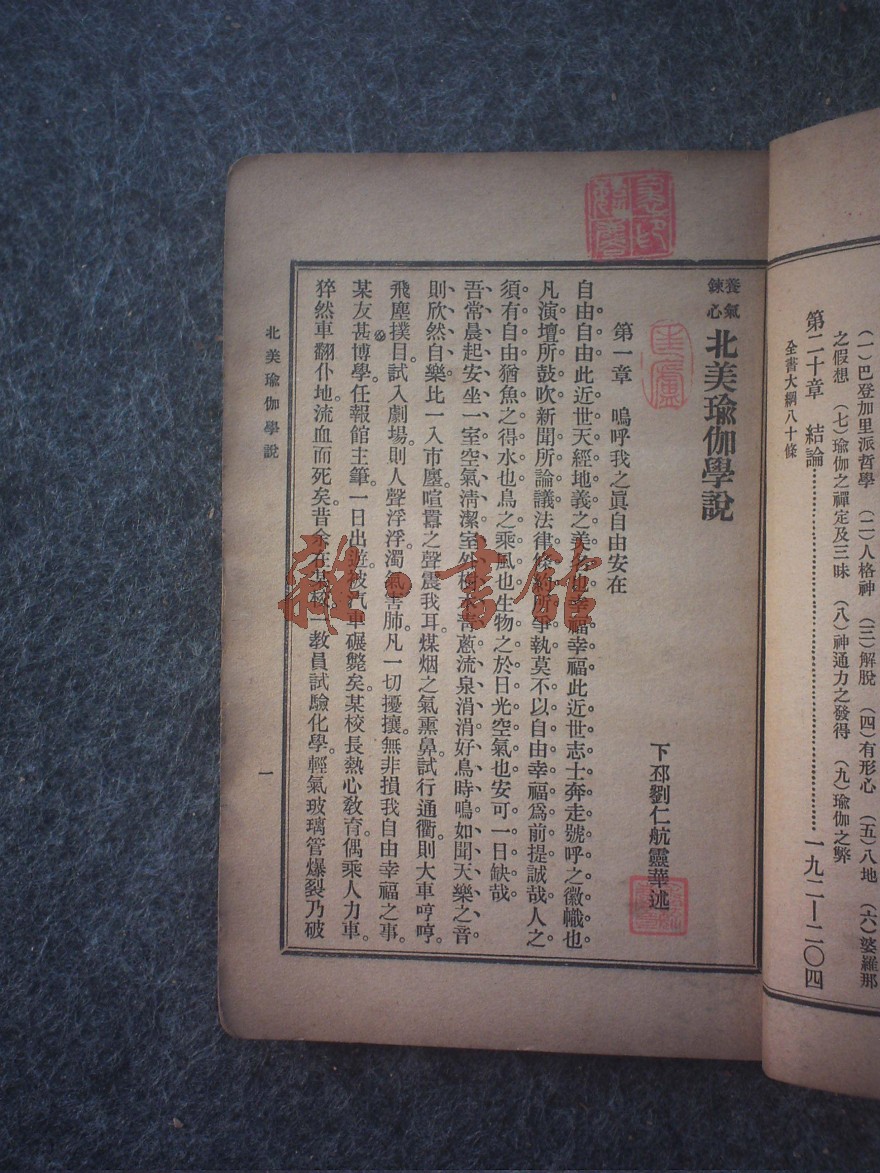 （一）巴登加里派哲學　（二）人格神　（三）解脫　（四）有形心　（五）八地　（六）婆羅那
之假想　（七）瑜伽之禪定及三昧　（八）神通力之發得　（九）瑜伽之弊
第二十章　結論……………………一九二—二〇四
全書大綱八十條
養氣
鍊心
北美瑜伽學說
下邳劉仁航靈華述
第一章　嗚呼我之眞自由安在
自由自由此近世天經地義之美名也幸福幸福此近世志士奔走號呼之徽幟也
凡演壇所鼓吹新聞所論議法律條約所爭執莫不以自由幸福爲前提誠哉人之
須有自由猶魚之得水也鳥之乘風也生物之於日光空氣也安可一日缺哉
吾常晨起安坐一室空氣淸潔室外樹木靑蔥流泉涓涓好鳥時鳴如聞天樂之音
則欣然自樂比一入市廛喧囂之聲震我耳煤烟之氣熏鼻試行通衢則大車哼哼
飛塵撲目試入劇場則人聲浮浮濁氣害肺凡一切擾攘無非損我自由幸福之事
某友甚博學任報館主筆一日出遊被汽車碾斃矣某校長熱心敎育偶乘人力車
猝然車翻仆地流血而死矣昔余在某校一敎員試驗化學輕氣玻璃管爆裂乃破
北美瑜伽學說
一
雜·書館